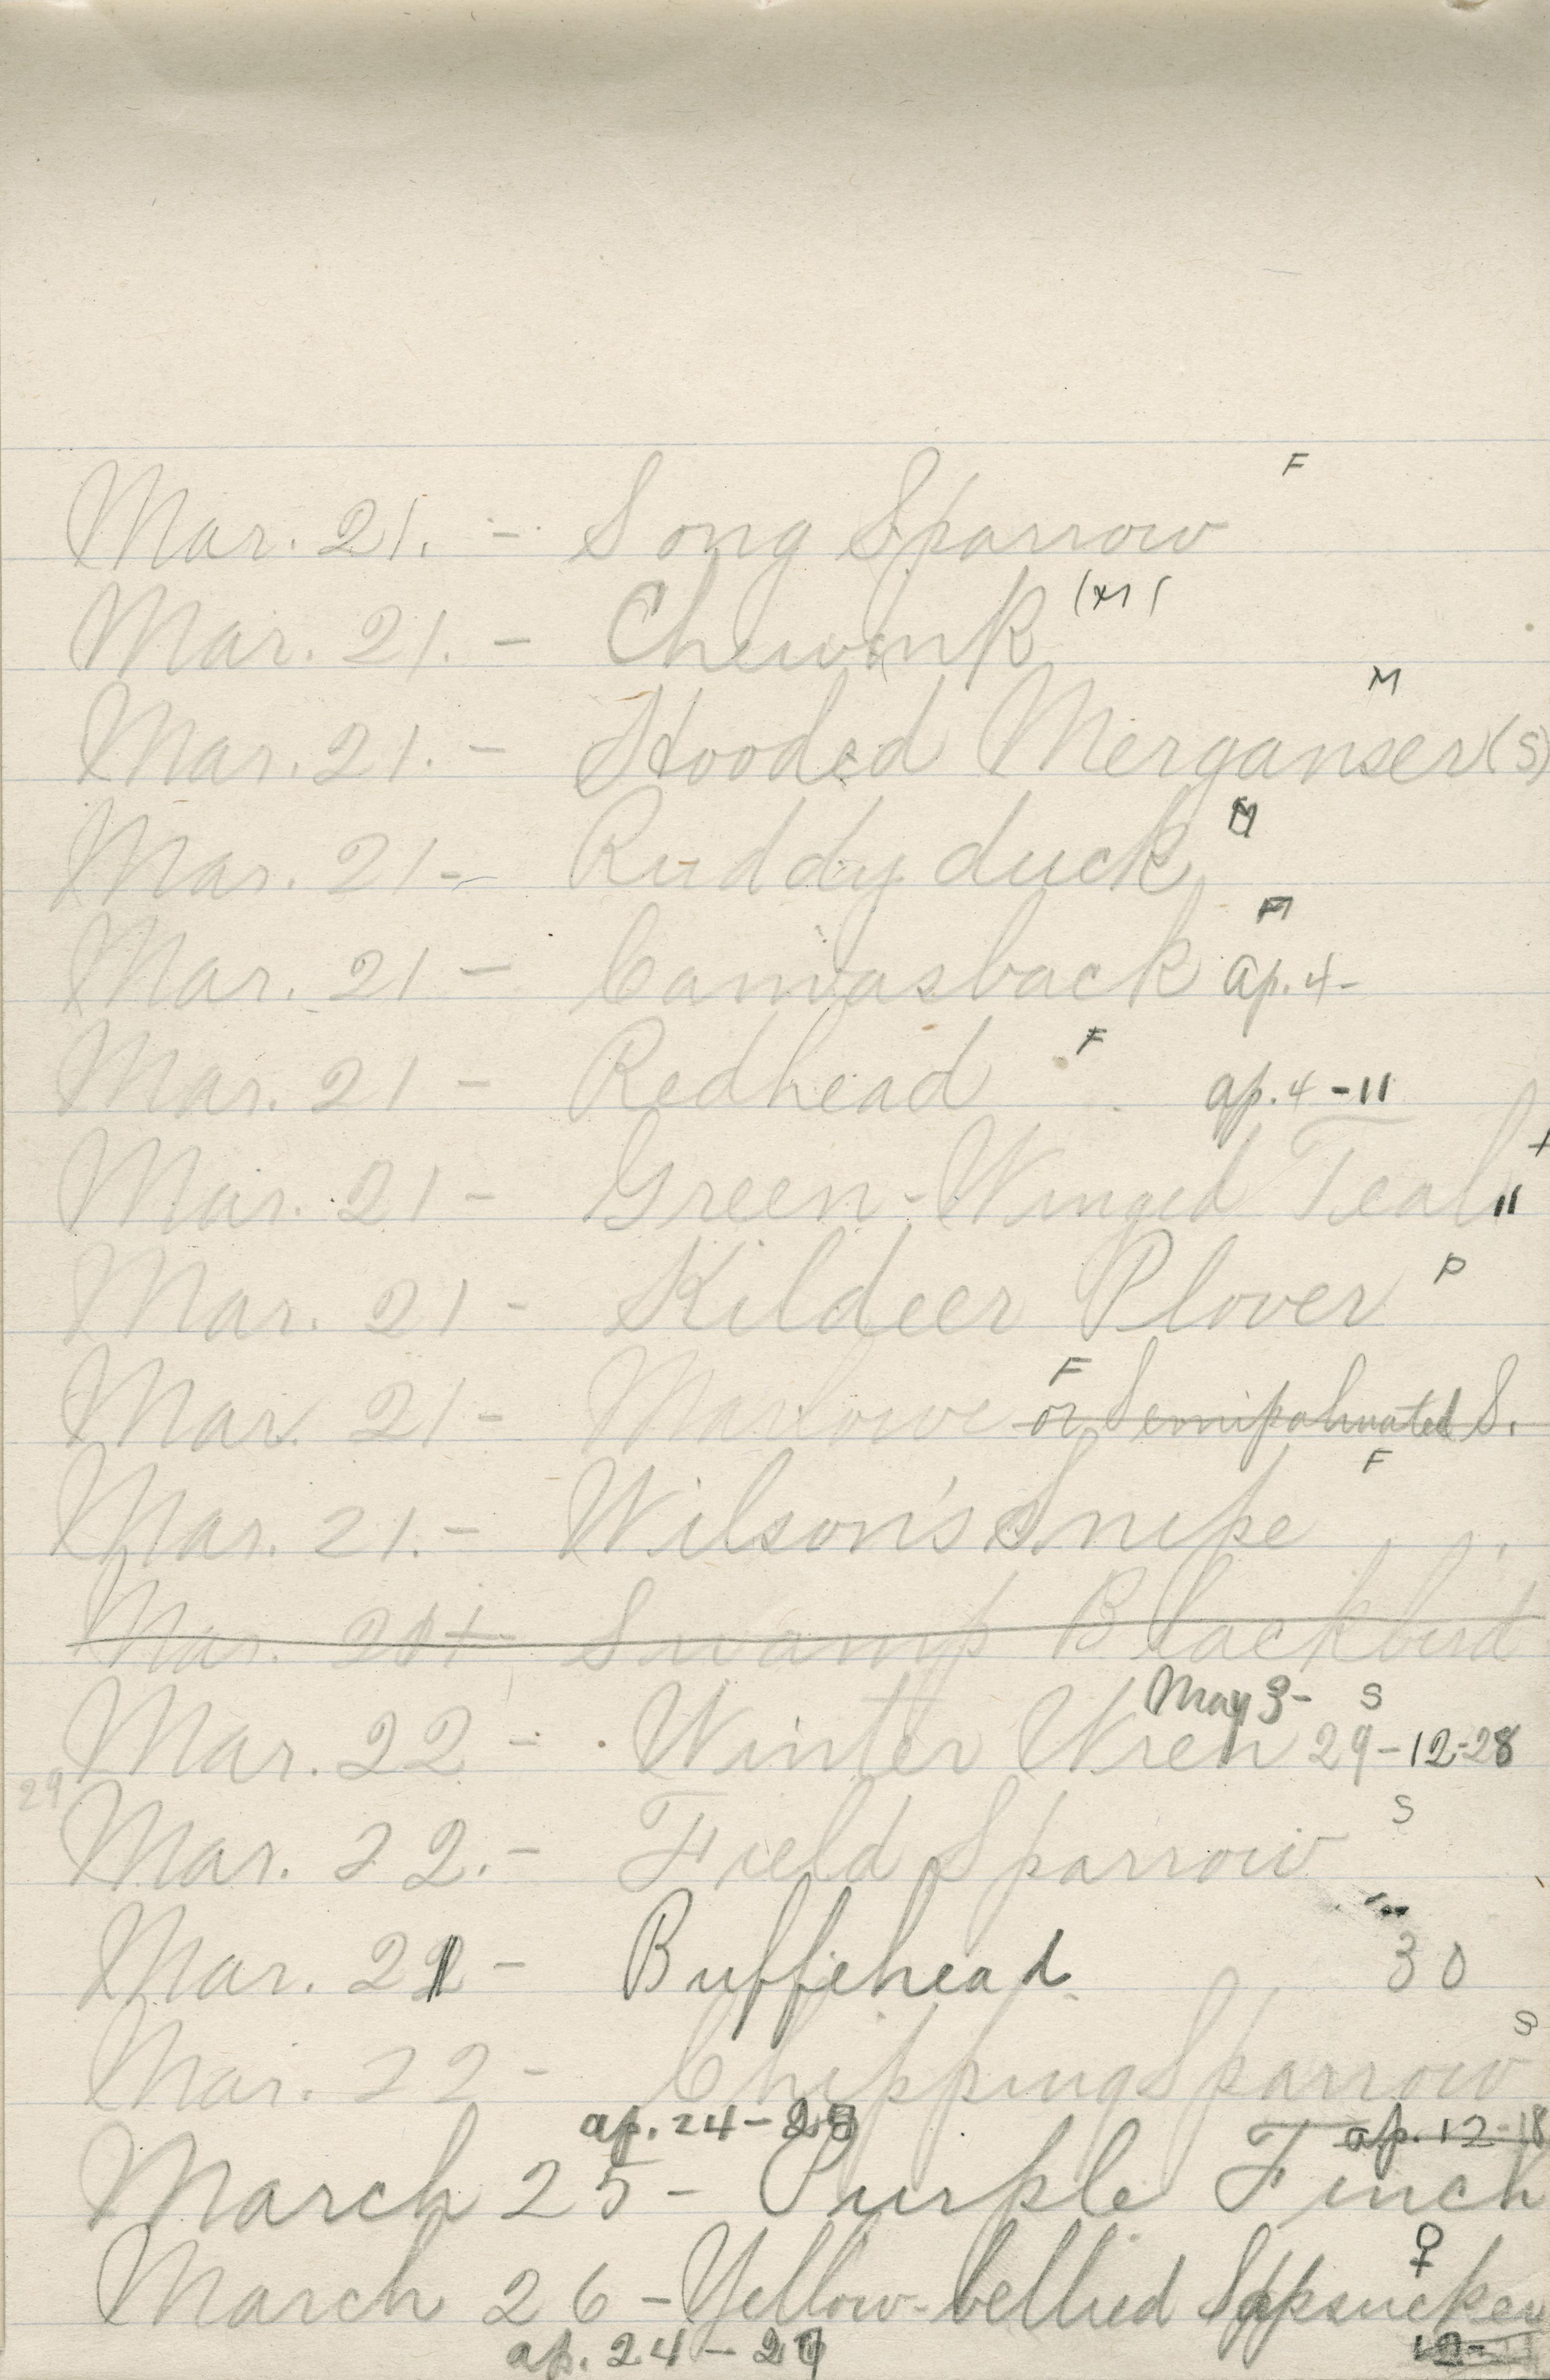 F
Mar. 21. - Song Sparrow
Mar. 21. - Chewink (M)
M
Mar. 21. - Hooded Merganser (S)
Mar. 21 - Ruddy duck M
Mar. 21 - Canvasback ap. 4-
Mar. 21 - Redhead F ap. 4-11
Mar. 21 - Green-Winged Teal 11
Mar. 21 - Kildeer Plover P
F
Mar. 21 - or Semipalmated S.
F
Mar. 21. - Wilson's Snipe
Mar. 21 - Swamp Blackbird
May 3- S
Mar. 22 - Winter Wren 29-12-28
29 S
Mar. 22. - Field Sparrow
Mar. 21 - Buffehead 30
S
Mar. 22 - Chipping Sparrow
ap. 24-28 ap. 12-18
March 25 - Purple Finch
♀
March 26 - Yellow-bellied Sapsucker
ap. 24-27 12-